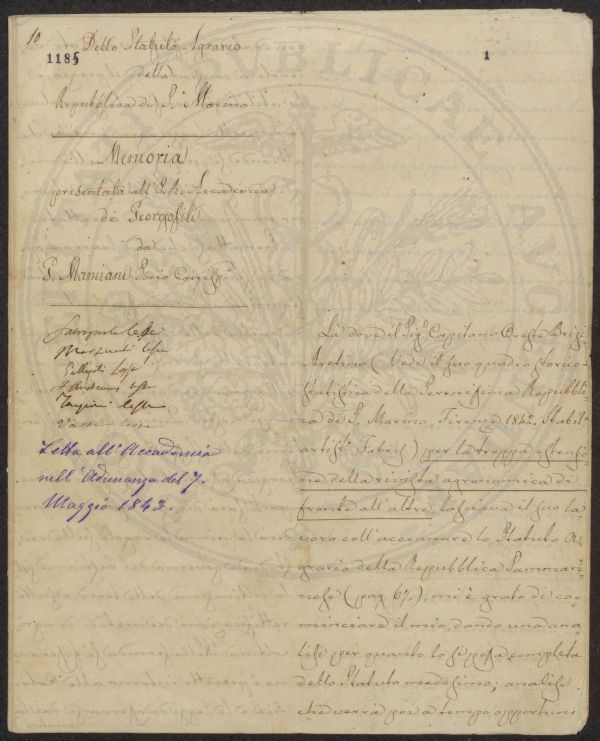 10
1185
1
Dello Statuto Agrario
della
Repubblica di S. Marino
Memoria
presentata all' I. R. Accademia
de Georgofili
da
G. Mamiani Socio Corrisp.
lesse
lesse
lesse
lesse
lesse
Letta all' Accademia
nell' Adunanza del 7.
Maggio 1843.
Là dove il Sig.r Capitano Oreste Brizi
Aretino (Vede il suo quadro storico-
statistico della Serenissima Repubbli
ca di S. Marino, Firenze 1842. Stabil.
artist. Fabris) per la troppa estensio
ne della rivista agronomica di
fronte all' altre, lasciava il suo la
voro coll' accennare lo Statuto A
grario della Repubblica Sammari
nese (pag. 67.), mi è grato di co=
minciare il mio, dando una ana
lisi per quanto lo si possa completa
dello Statuto medesimo; analisi
che verrà poi a tempo opportuni